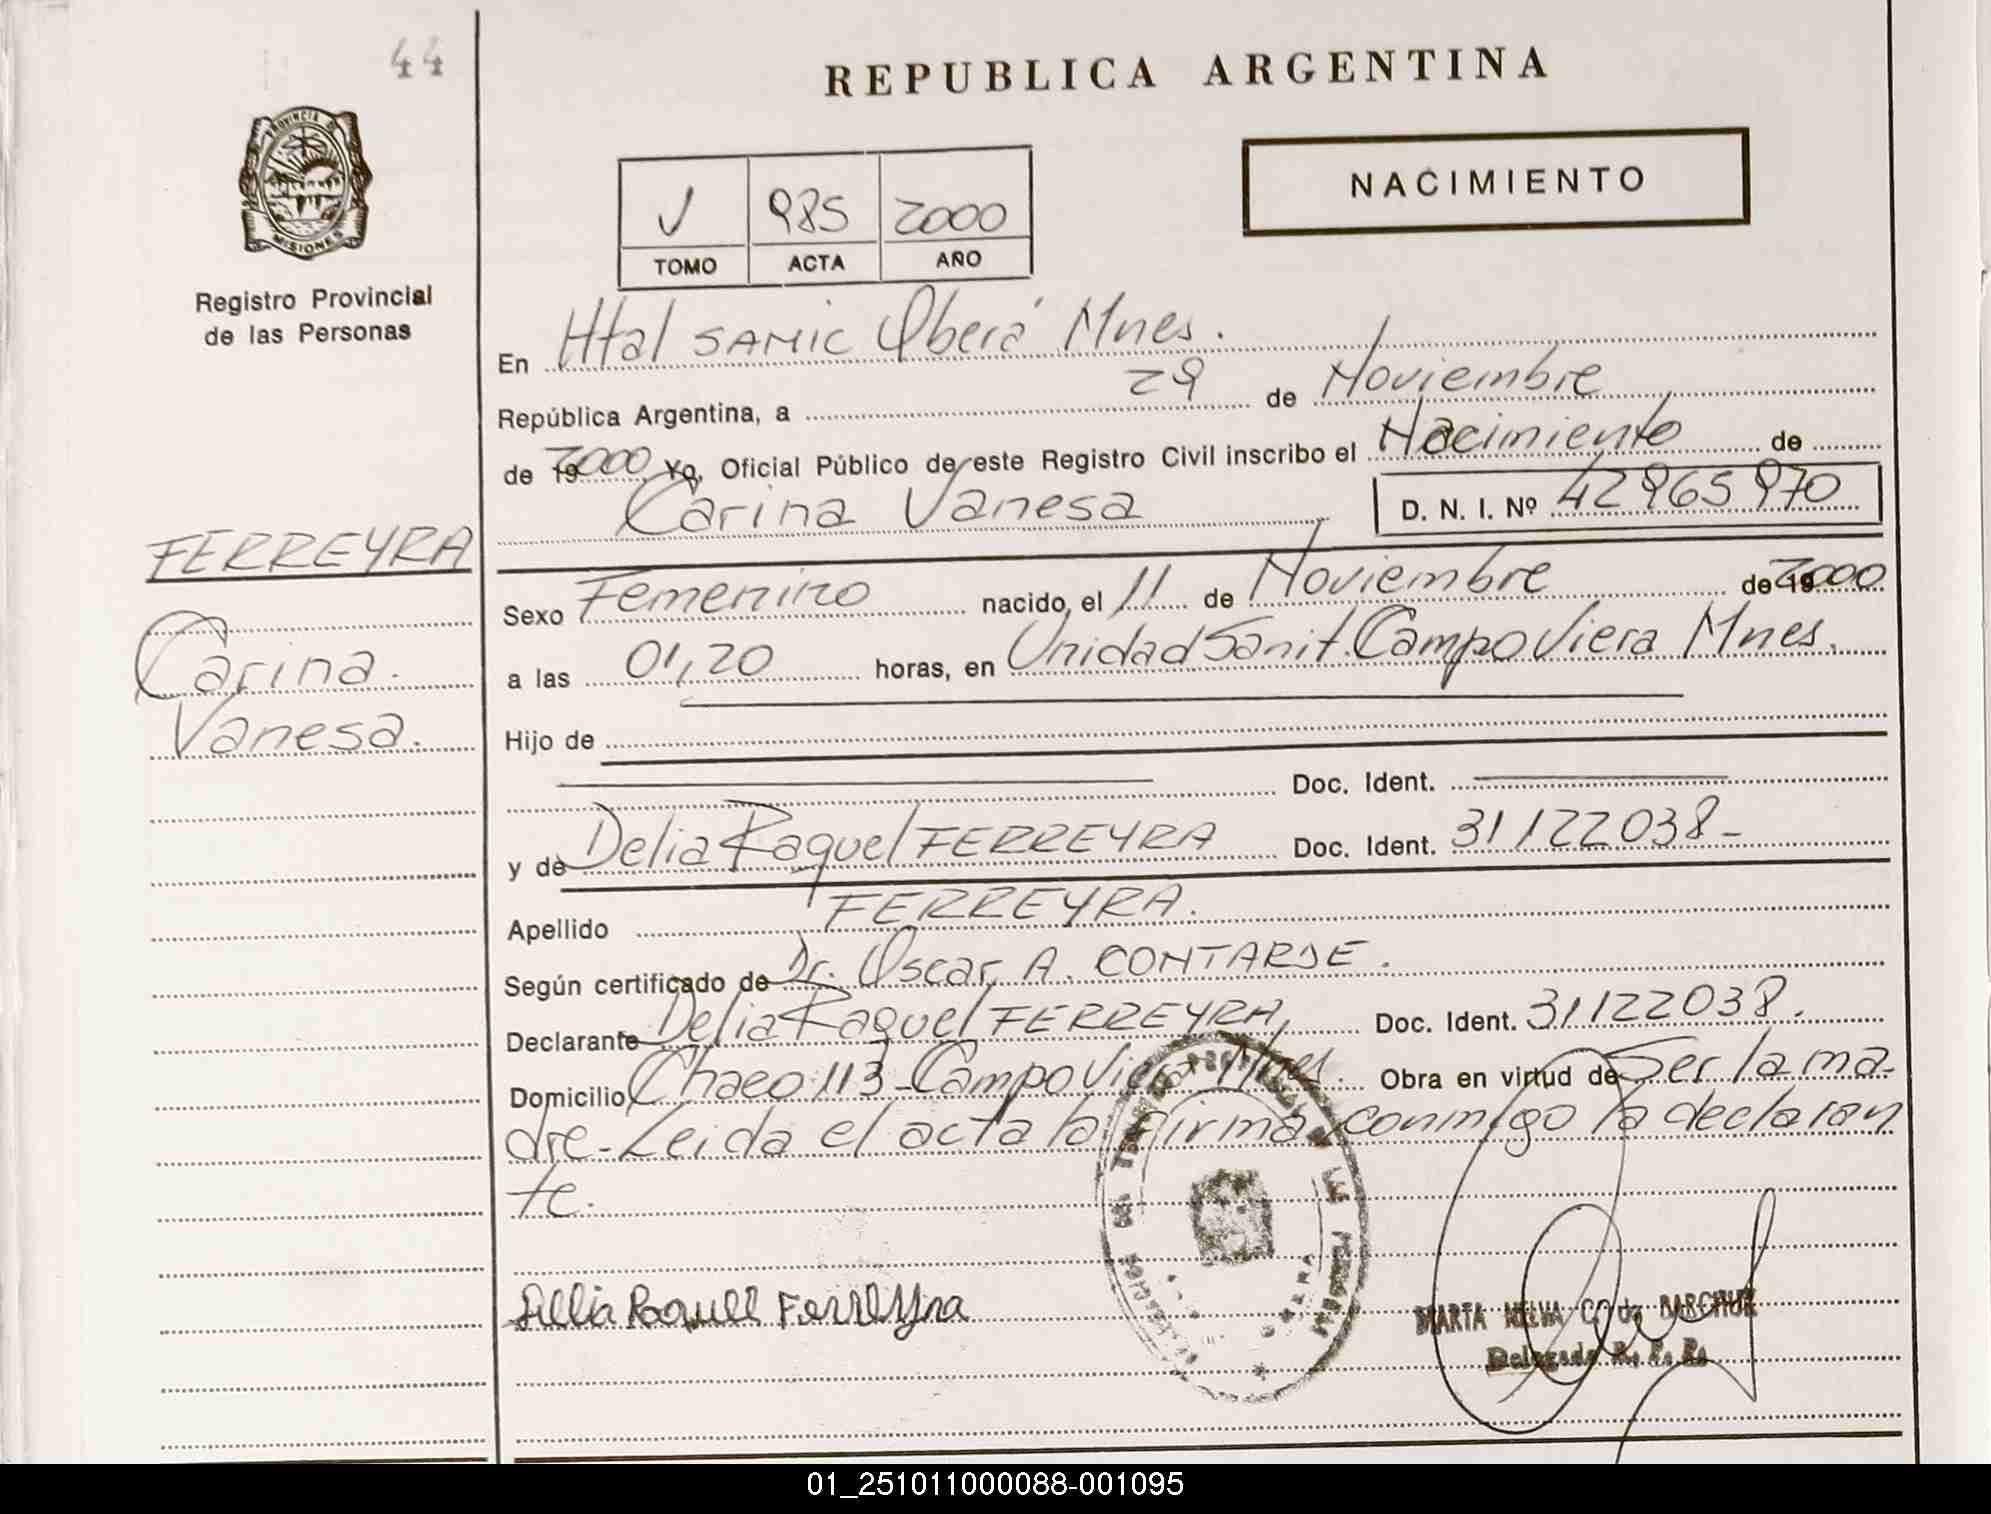 44
REPUBLICA ARGENTINA
PROVINCIA DE
MISIONES
Registro Provincial
de las Personas
NACIMIENTO
V 985 2000
TOMO ACTA AÑO
En Htal SAMIC Oberá Mnes.
República Argentina, a 29 de Noviembre
de 192000 Yo, Oficial Público de este Registro Civil inscribo el Nacimiento de
Carina Vanesa D. N. I. Nº 42965970
FERREYRA
Carina.
Vanesa.
Sexo Femenino nacido, el 11 de Noviembre de 192000
a las 01,20 horas, en Unidad Sanit. Campo Viera Mnes.
Hijo de
Doc. Ident.
y de Delia Raquel FERREYRA Doc. Ident. 31122038-
Apellido FERREYRA.
Según certificado de Dr. Oscar A. CONTARDE.
Declarante Delia Raquel FERREYRA, Doc. Ident. 31122038.
Domicilio Chaco 113-Campo Viera Mnes. Obra en virtud de Ser la ma-
dre-Leida el acta la firma conmigo la declaran
te.
Delia Raquell Ferreyra
MARTA C. de
Delegada R. P. P.
01_251011000088-001095